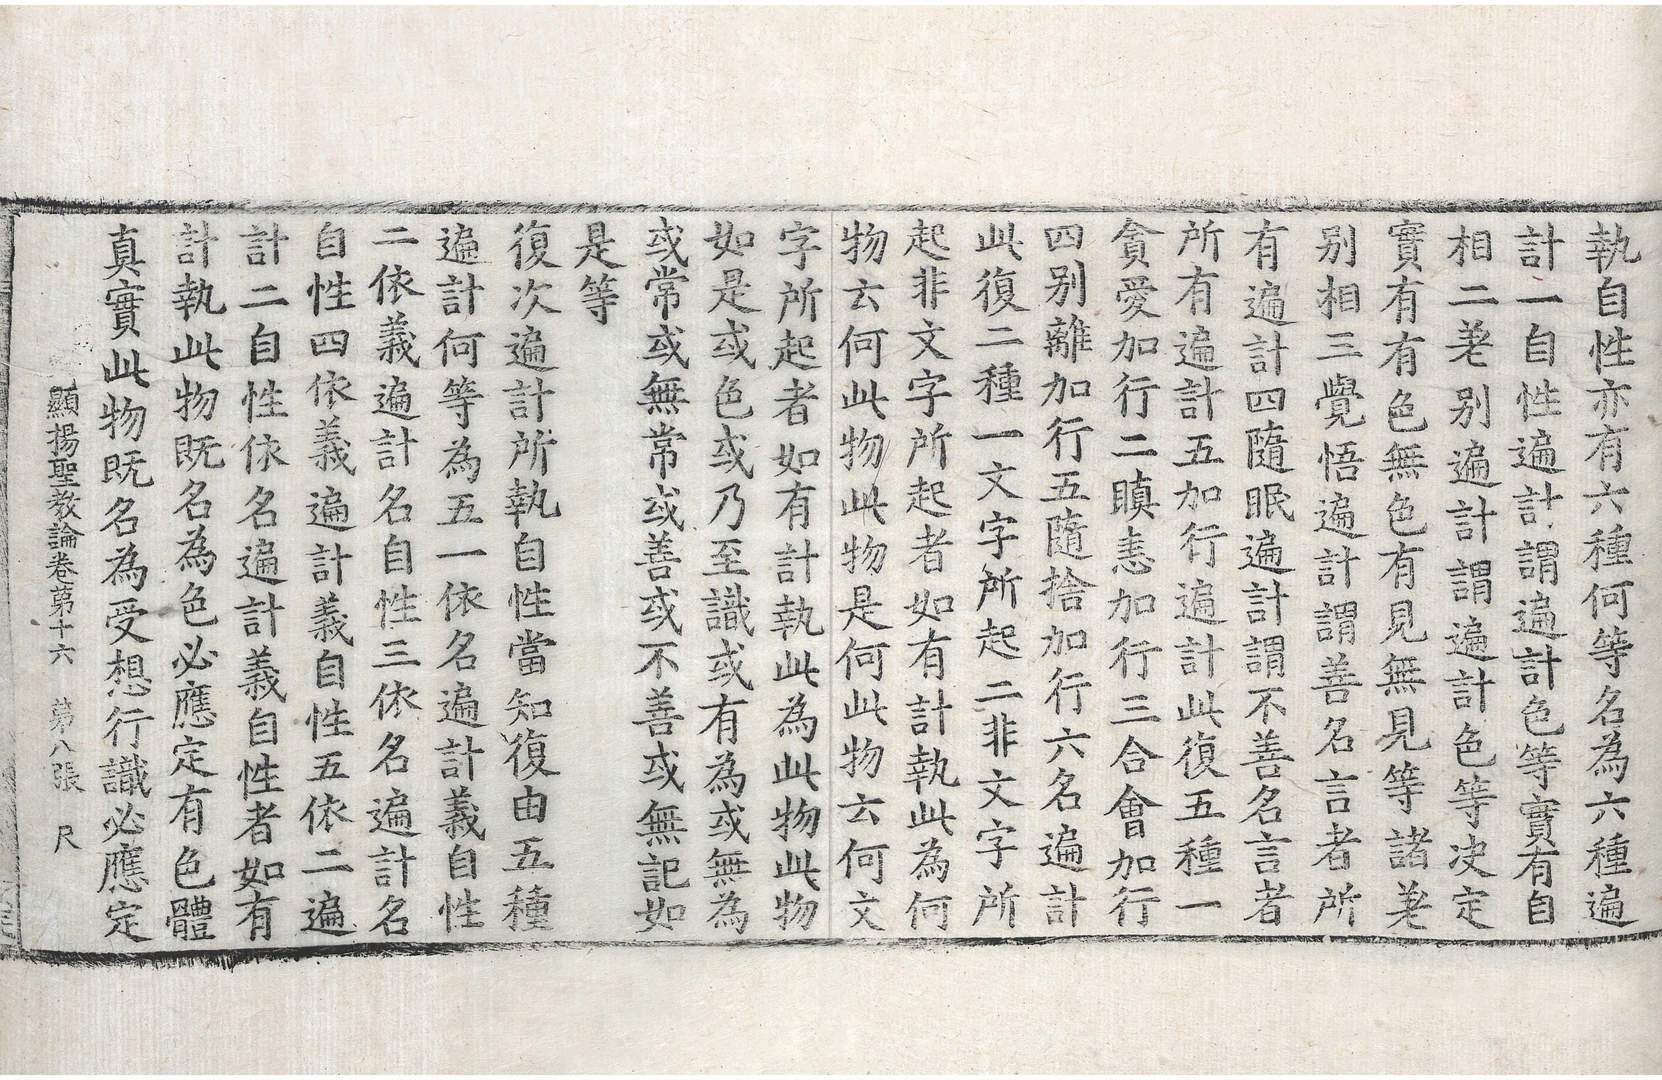 執自性亦有六種何等名為六種遍
計一自性遍計謂遍計色等實有自
相二差別遍計謂遍計色等决定
實有有色無色有見無見等諸差
別相三覺悟遍計謂善名言者所
有遍計四隨眠遍計謂不善名言者
所有遍計五加行遍計此復五種一
貪愛加行二瞋恚加行三合會加行
四別離加行五隨捨加行六名遍計
此復二種一文字所起二非文字所
起非文字所起者如有計執此為何
物云何此物此物是何此物云何文
字所起者如有計執此為此物此物
如是或色或乃至識或有為或無為
或常或無常或善或不善或無記如
是等
復次遍計所執自性當知復由五種
遍計何等為五一依名遍計義自性
二依義遍計名自性三依名遍計名
自性四依義遍計義自性五依二遍
計二自性依名遍計義自性者如有
計執此物既名為色必應定有色體
真實此物既名為受想行識必應定
顯揚聖教論卷第十六　第八張　尺